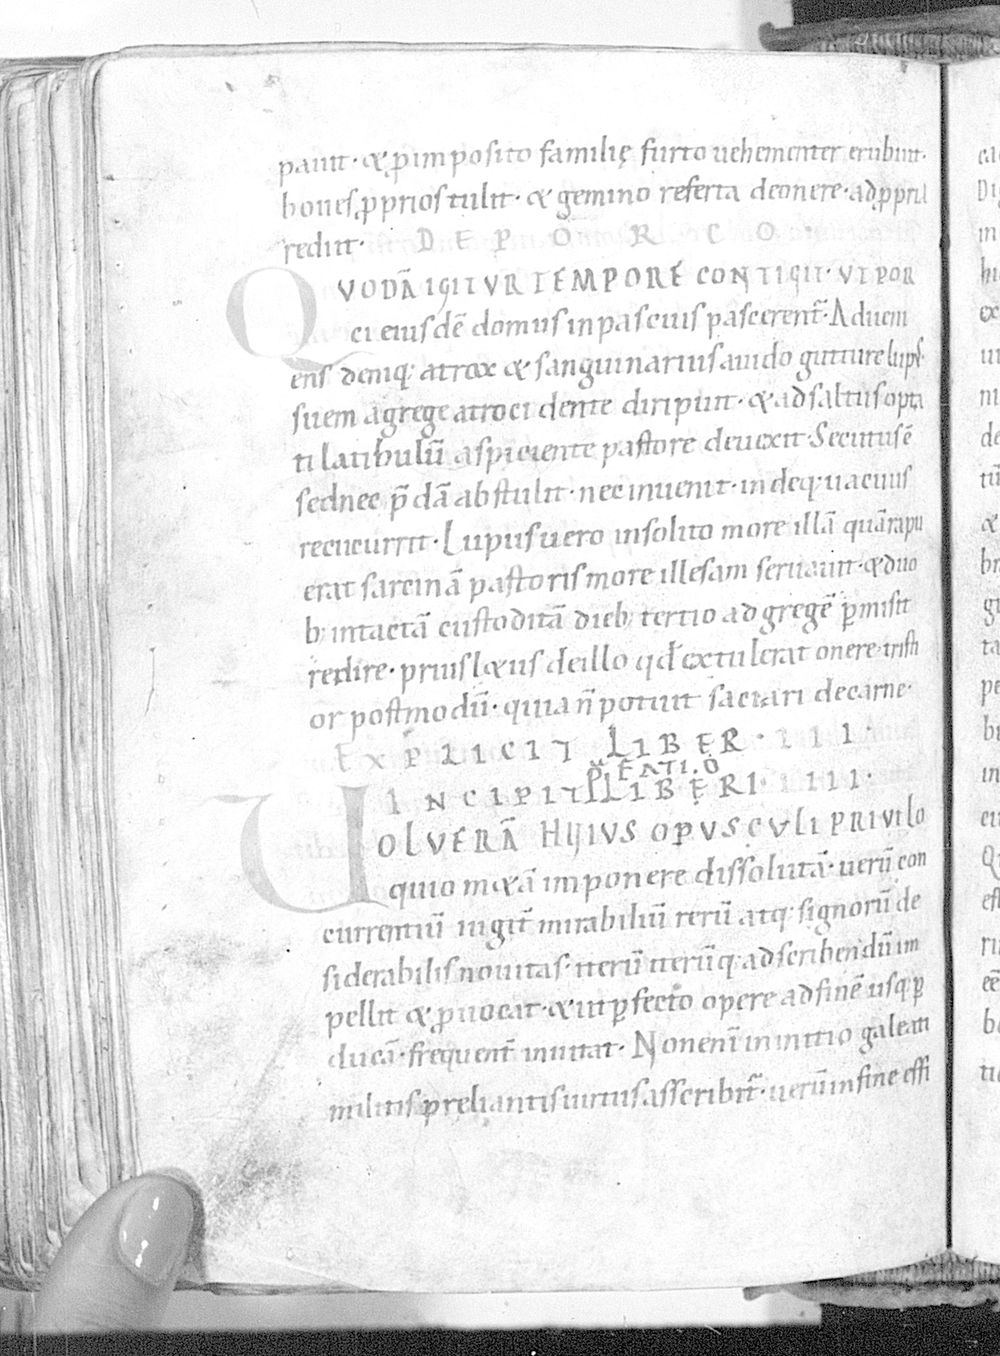 pauit· & p̄ imposito familię furto uehementer erubuit·
boues ꝓprios tulit· & gemino referta de onere· ad ꝓpria
rediit· DE PORCO
QVODĀ IGITVR TEMPORE CONTIGIT· VT POR
ci eiusdē domus in pascuis pascerent᷑· Adueni
ens deniq; atrox & sanguinarius auido gutture lupꝰ·
suem a grege atroci dente diripuit· & ad saltus opta
ti latibulū aspiciente pastore deuexit· Secutus ē
sed nec p̄dā abstulit· nec inuenit· indeq; uacuus
recucurrit· Lupus uero insolito more illā quā rapu
erat sarcinā pastoris more illesam seruauit· & duo
b; intactā custoditā dieb; tertio ad gregē p̄misit
redire· prius lætus de illo qd̄ extulerat onere tristi
or postmodū· quia n̄ potuit saciari de carne·
EXPLICIT LIBER· III
P̄FATIO
INCIPIT LIBERI· IIII·
VOLVERĀ HUIVS OPVSCVLI PRIVILO
quio metā imponere dissolutā· uerū con
currentiū iugit̄ mirabiliū rerū atq; signorū de
siderabilis nouitas· iterū iterūq; ad scribendū im
pellit & ꝓuocat· & ut ꝑfecto opere ad finē usq; ꝑ
ducā· frequent̄ inuitat· Non enī in initio galeati
militis preliantis uirtus asscribit᷑· uerū in fine effi